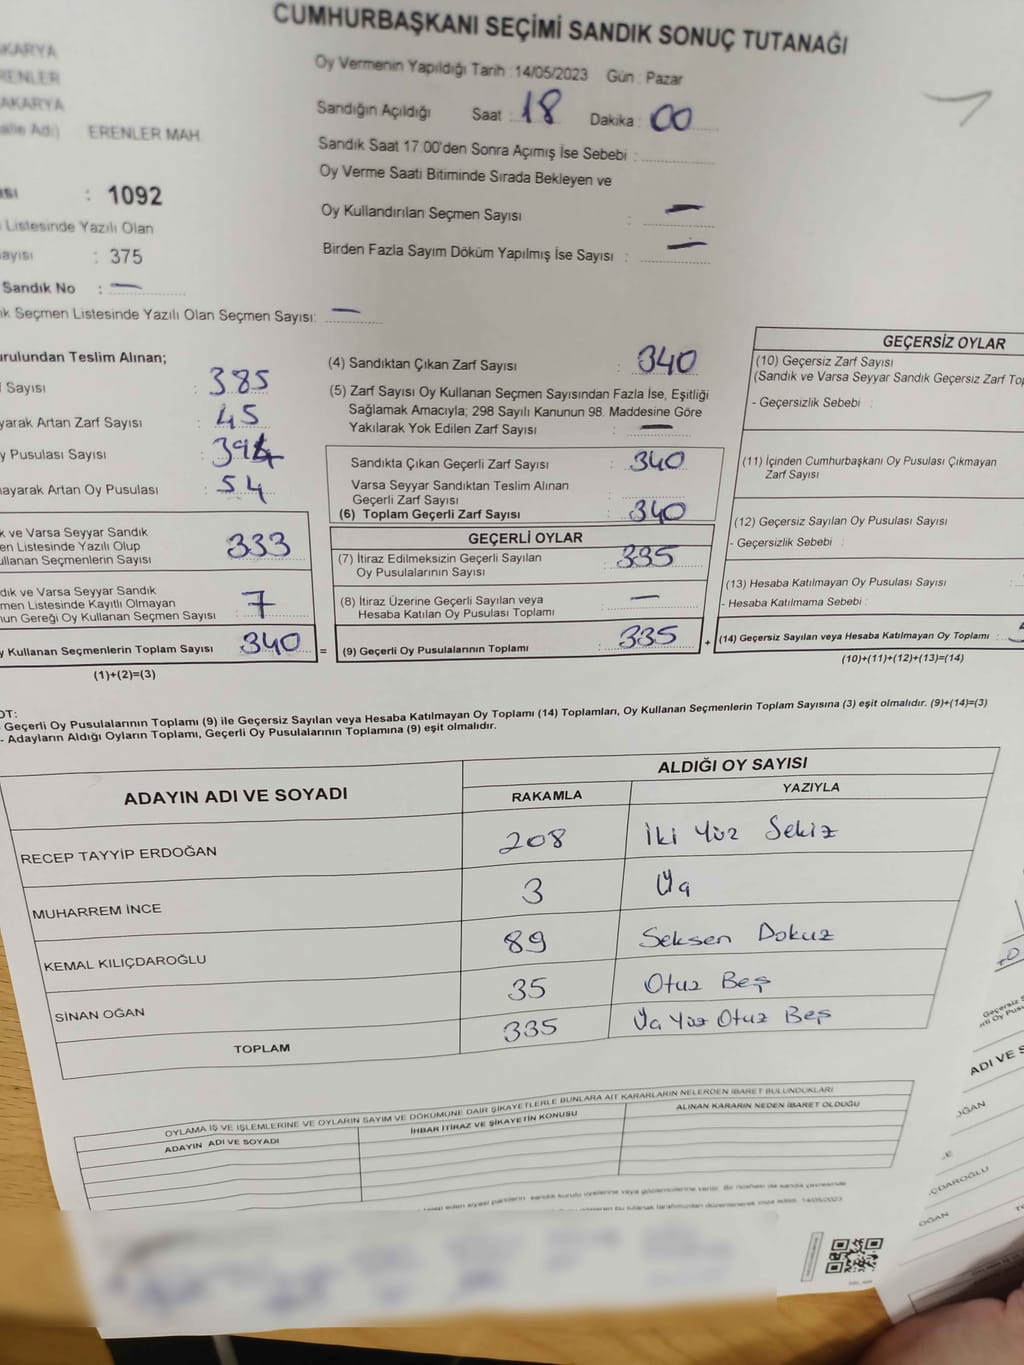 CUMHURBAŞKANI SEÇİMİ SANDIK SONUÇ TUTANAĞI
AKARYA
ERENLER
AKARYA
alle Adı) ERENLER MAH
Oy Vermenin Yapıldığı Tarih : 14/05/2023 Gün : Pazar
Sandığın Açıldığı Saat : 18 Dakika : 00
Sandık Saat 17.00'den Sonra Açımış İse Sebebi :
Oy Verme Saati Bitiminde Sırada Bekleyen ve
Oy Kullandırılan Seçmen Sayısı : —
Birden Fazla Sayım Döküm Yapılmış İse Sayısı : —
ısı : 1092
Listesinde Yazılı Olan
ayısı : 375
Sandık No : —
ık Seçmen Listesinde Yazılı Olan Seçmen Sayısı: —
urulundan Teslim Alınan;
f Sayısı : 385
yarak Artan Zarf Sayısı : 45
y Pusulası Sayısı : 394
nayarak Artan Oy Pusulası : 54
k ve Varsa Seyyar Sandık
en Listesinde Yazılı Olup
ullanan Seçmenlerin Sayısı : 333
dık ve Varsa Seyyar Sandık
men Listesinde Kayıtlı Olmayan
nun Gereği Oy Kullanan Seçmen Sayısı : 7
y Kullanan Seçmenlerin Toplam Sayısı 340 =
(1)+(2)=(3)
(4) Sandıktan Çıkan Zarf Sayısı : 340
(5) Zarf Sayısı Oy Kullanan Seçmen Sayısından Fazla İse, Eşitliği
Sağlamak Amacıyla; 298 Sayılı Kanunun 98. Maddesine Göre
Yakılarak Yok Edilen Zarf Sayısı : —
Sandıkta Çıkan Geçerli Zarf Sayısı : 340
Varsa Seyyar Sandıktan Teslim Alınan
Geçerli Zarf Sayısı :
(6) Toplam Geçerli Zarf Sayısı : 340
GEÇERLİ OYLAR
(7) İtiraz Edilmeksizin Geçerli Sayılan
Oy Pusulalarının Sayısı : 335
(8) İtiraz Üzerine Geçerli Sayılan veya
Hesaba Katılan Oy Pusulası Toplamı : —
(9) Geçerli Oy Pusulalarının Toplamı : 335 +
GEÇERSİZ OYLAR
(10) Geçersiz Zarf Sayısı
(Sandık ve Varsa Seyyar Sandık Geçersiz Zarf Top
- Geçersizlik Sebebi :
(11) İçinden Cumhurbaşkanı Oy Pusulası Çıkmayan
Zarf Sayısı
(12) Geçersiz Sayılan Oy Pusulası Sayısı
- Geçersizlik Sebebi :
(13) Hesaba Katılmayan Oy Pusulası Sayısı :
- Hesaba Katılmama Sebebi :
(14) Geçersiz Sayılan veya Hesaba Katılmayan Oy Toplamı :
(10)+(11)+(12)+(13)=(14)
OT:
- Geçerli Oy Pusulalarının Toplamı (9) ile Geçersiz Sayılan veya Hesaba Katılmayan Oy Toplamı (14) Toplamları, Oy Kullanan Seçmenlerin Toplam Sayısına (3) eşit olmalıdır. (9)+(14)=(3)
- Adayların Aldığı Oyların Toplamı, Geçerli Oy Pusulalarının Toplamına (9) eşit olmalıdır.
ADAYIN ADI VE SOYADI ALDIĞI OY SAYISI
RAKAMLA YAZIYLA
RECEP TAYYİP ERDOĞAN 208 İki Yüz Sekiz
MUHARREM İNCE 3 Üç
KEMAL KILIÇDAROĞLU 89 Seksen Dokuz
SİNAN OĞAN 35 Otuz Beş
TOPLAM 335 Üç Yüz Otuz Beş
OYLAMA İŞ VE İŞLEMLERİNE VE OYLARIN SAYIM VE DÖKÜMÜNE DAİR ŞİKAYETLERLE BUNLARA AİT KARARLARIN NELERDEN İBARET BULUNDUKLARI
ADAYIN ADI VE SOYADI İHBAR İTİRAZ VE ŞİKAYETİN KONUSU ALINAN KARARIN NEDEN İBARET OLDUĞU
ADI VE S
OĞAN
CE
ÇDAROĞLU
OĞAN